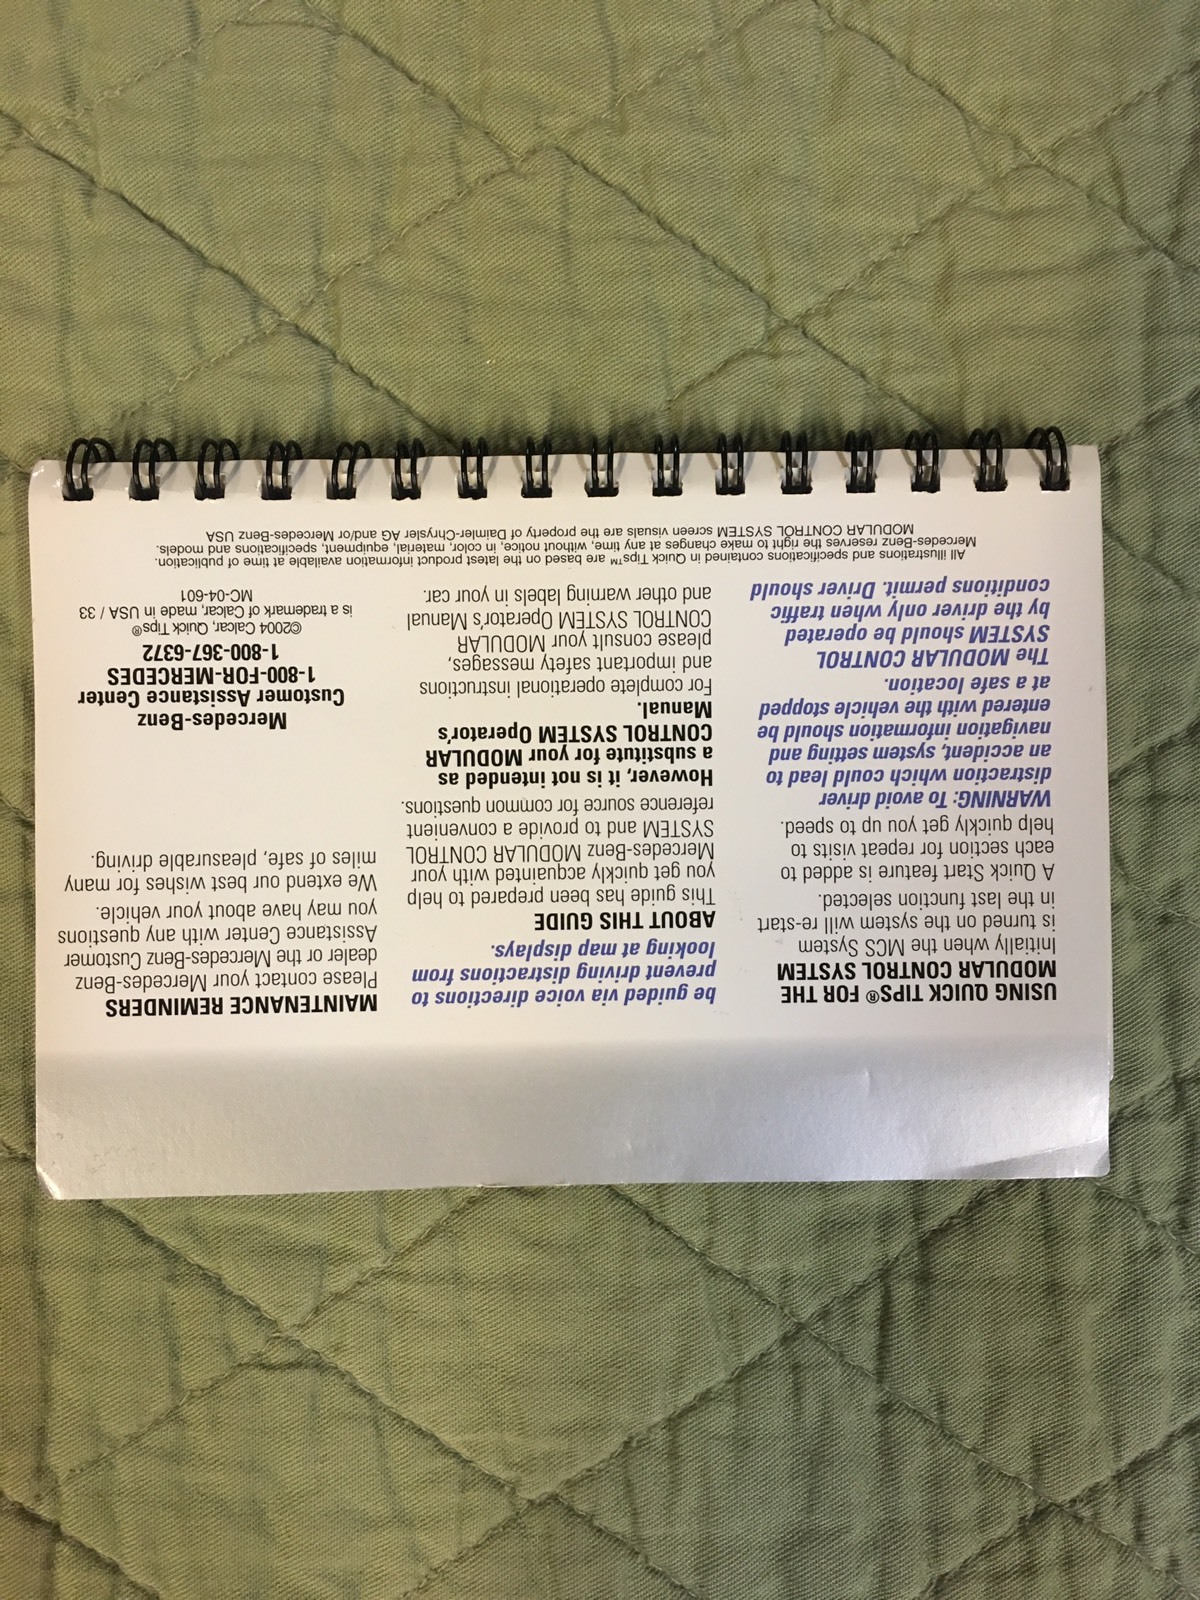 USING QUICK TIPS® FOR THE
MODULAR CONTROL SYSTEM
Initially when the MCS System
is turned on the system will re-start
in the last function selected.
A Quick Start feature is added to
each section for repeat visits to
help quickly get you up to speed.
WARNING: To avoid driver
distraction which could lead to
an accident, system setting and
navigation information should be
entered with the vehicle stopped
at a safe location.
The MODULAR CONTROL
SYSTEM should be operated
by the driver only when traffic
conditions permit. Driver should
be guided via voice directions to
prevent driving distractions from
looking at map displays.
ABOUT THIS GUIDE
This guide has been prepared to help
you get quickly acquainted with your
Mercedes-Benz MODULAR CONTROL
SYSTEM and to provide a convenient
reference source for common questions.
However, it is not intended as
a substitute for your MODULAR
CONTROL SYSTEM Operator's
Manual.
For complete operational instructions
and important safety messages,
please consult your MODULAR
CONTROL SYSTEM Operator's Manual
and other warning labels in your car.
MAINTENANCE REMINDERS
Please contact your Mercedes-Benz
dealer or the Mercedes-Benz Customer
Assistance Center with any questions
you may have about your vehicle.
We extend our best wishes for many
miles of safe, pleasurable driving.
Mercedes-Benz
Customer Assistance Center
1-800-FOR-MERCEDES
1-800-367-6372
©2004 Calcar, Quick Tips®
is a trademark of Calcar, made in USA / 33
MC-04-601
All illustrations and specifications contained in Quick Tips™ are based on the latest product information available at time of publication.
Mercedes-Benz reserves the right to make changes at any time, without notice, in color, material, equipment, specifications and models.
MODULAR CONTROL SYSTEM screen visuals are the property of Daimler-Chrysler AG and/or Mercedes-Benz USA